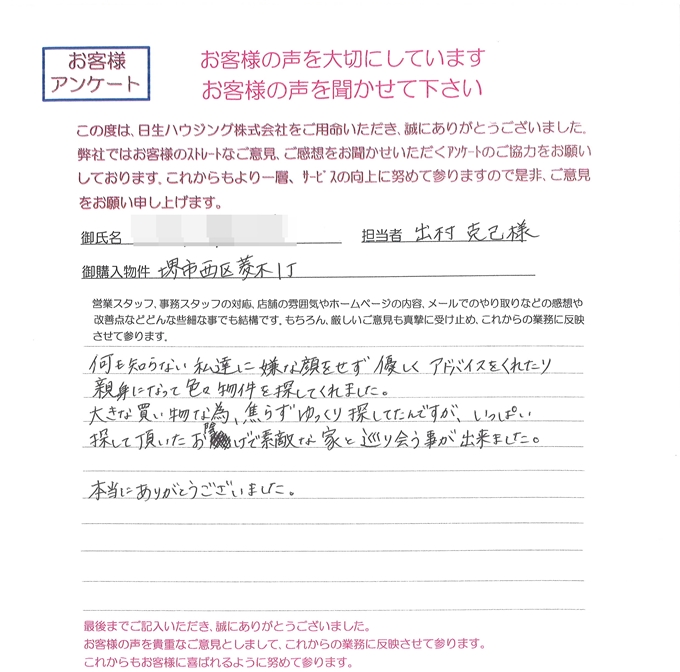 お客様
アンケート
お客様の声を大切にしています
お客様の声を聞かせて下さい
この度は、日生ハウジング株式会社をご用命いただき、誠にありがとうございました。
弊社ではお客様のストレートなご意見、ご感想をお聞かせいただくアンケートのご協力をお願い
しております。これからもより一層、サービスの向上に努めて参りますので是非、ご意見
をお願い申し上げます。
御氏名
担当者 出村 克己様
御購入物件 堺市西区菱木1丁
営業スタッフ、事務スタッフの対応、店舗の雰囲気やホームページの内容、メールでのやり取りなどの感想や
改善点などどんな些細な事でも結構です。もちろん、厳しいご意見も真摯に受け止め、これからの業務に反映
させて参ります。
何も知らない私達に嫌な顔をせず優しくアドバイスをくれたり
親身になって色々物件を探してくれました。
大きな買い物な為、焦らずゆっくり探してたんですが、いっぱい
探して頂いたお陰げで素敵な家と巡り会う事が出来ました。
本当にありがとうございました。
最後までご記入いただき、誠にありがとうございました。
お客様の声を貴重なご意見としまして、これからの業務に反映させて参ります。
これからもお客様に喜ばれるように努めて参ります。